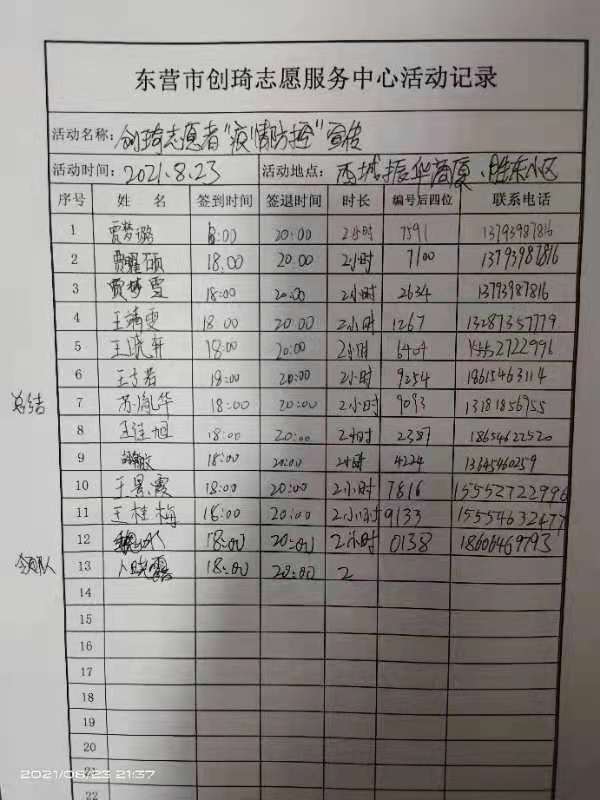 东营市创琦志愿服务中心活动记录
活动名称: 创琦志愿者"疫情防控"宣传
活动时间: 2021.8.23 活动地点: 西城振华商厦、胜东小区
序号 姓 名 签到时间 签退时间 时长 编号后四位 联系电话
1 贾梦璐 18:00 20:00 2小时 7591 13793987816
2 贾耀硕 18.00 20.00 2小时 7100 13793987816
3 贾梦雯 18:00 20:00 2小时 2634 13793987816
4 王靖雯 18:00 20:00 2小时 1267 13287357779
5 王晓轩 18:00 20:00 2小时 6404 15552722996
6 18:00 20:00 2小时 9254 18615463114
总结 7 苏胤华 18:00 20:00 2小时 9093 13181856955
8 王佳旭 18:00 20:00 2小时 2387 18654622520
9 18:00 20:00 2小时 4224 13645460259
10 王景霞 18:00 20:00 2小时 7816 15552722996
11 王桂梅 18:00 20:00 2小时 9133 15554632477
12 18:00 20:00 2小时 0138 18606469793
领队 13 卜晓露 18:00 20:00 2
14
15
16
17
18
19
20
21
22
2021/08/23 21:37